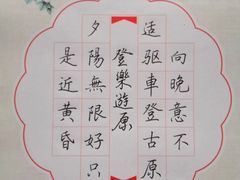 向晚意不
适驱車登古原
登樂遊原
夕陽無限好只
是近黄昏